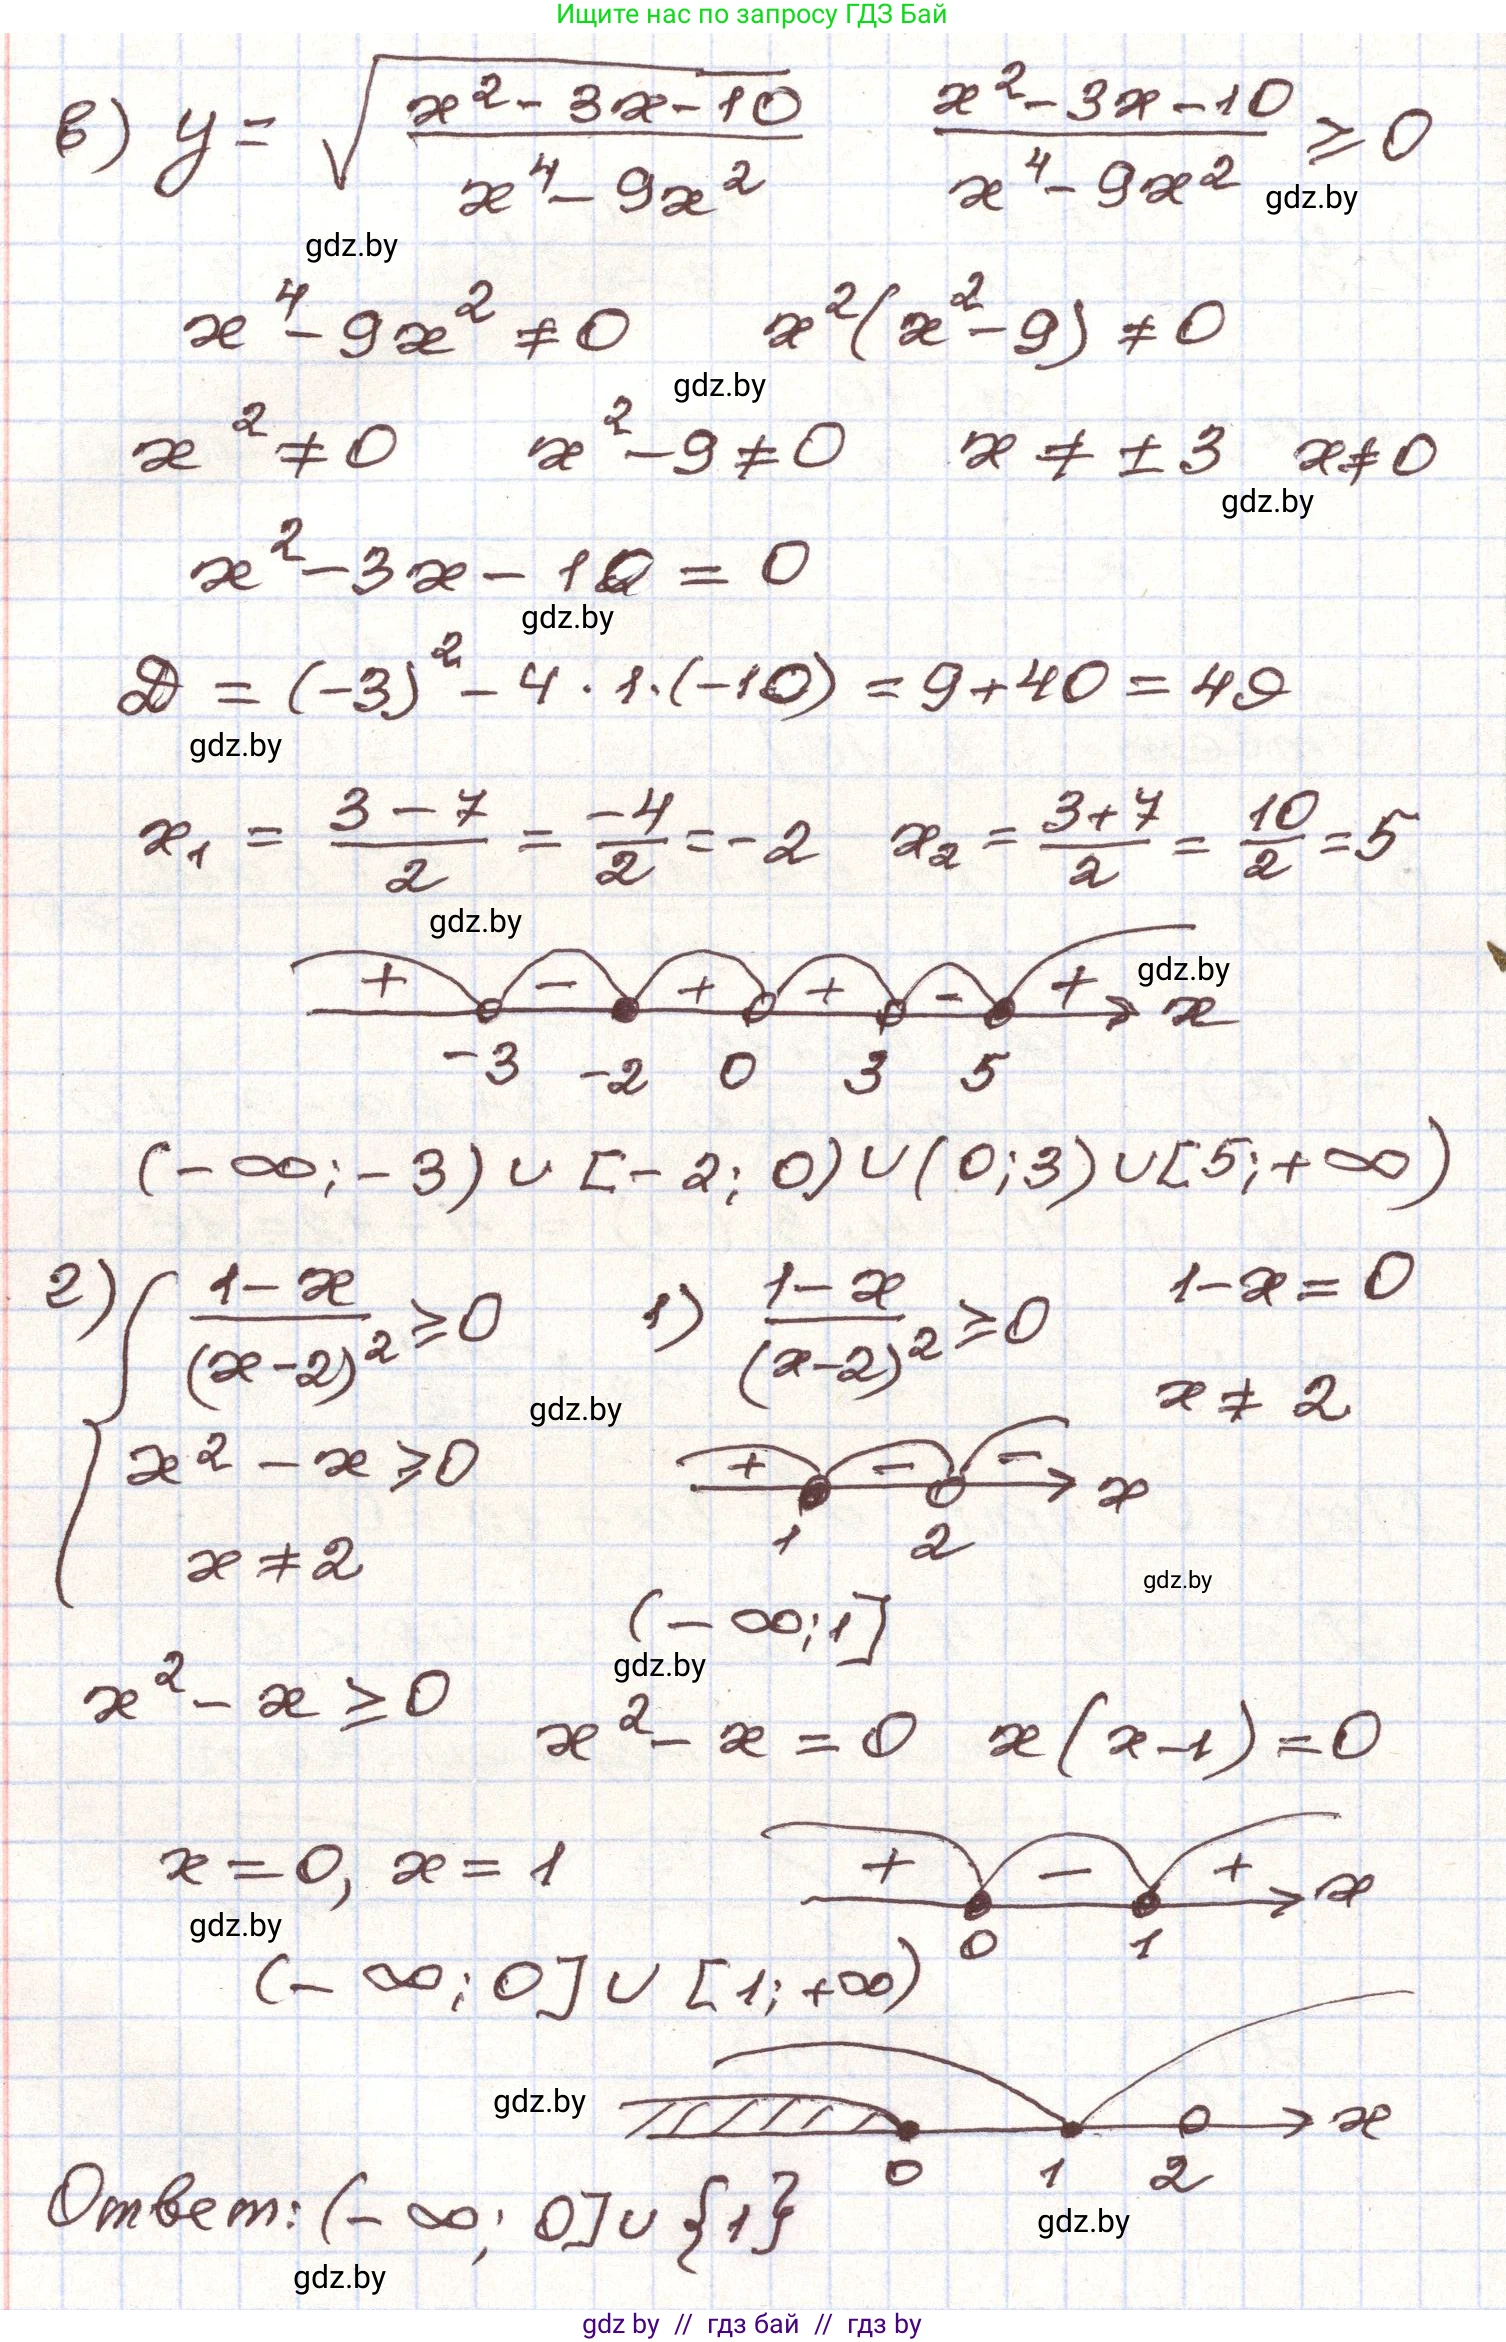 Ищите нас по запросу ГДЗ Бай
в) y = √((x² - 3x - 10)/(x⁴ - 9x²))   (x² - 3x - 10)/(x⁴ - 9x²) ⩾ 0
gdz.by
gdz.by
x⁴ - 9x² ≠ 0   x²(x² - 9) ≠ 0
gdz.by
x² ≠ 0   x² - 9 ≠ 0   x ≠ ±3   x ≠ 0
gdz.by
x² - 3x - 10 = 0
gdz.by
D = (-3)² - 4 · 1 · (-10) = 9 + 40 = 49
gdz.by
x₁ = (3 - 7)/2 = -4/2 = -2   x₂ = (3 + 7)/2 = 10/2 = 5
gdz.by
+ - + + - + x
gdz.by
-3 -2 0 3 5
(-∞; -3) ∪ [-2; 0) ∪ (0; 3) ∪ [5; +∞)
г) { (1 - x)/(x - 2)² ⩾ 0   1) (1 - x)/(x - 2)² ⩾ 0   1 - x = 0
gdz.by
x ≠ 2
x² - x ⩾ 0   + - - x
x ≠ 2   1 2
gdz.by
(-∞; 1]
gdz.by
x² - x ⩾ 0   x² - x = 0   x(x - 1) = 0
x = 0, x = 1   + - + x
gdz.by
0 1
(-∞; 0] ∪ [1; +∞)
gdz.by
x
0 1 2
Ответ: (-∞; 0] ∪ {1}
gdz.by
gdz.by
gdz by // гдз бай // гдз by